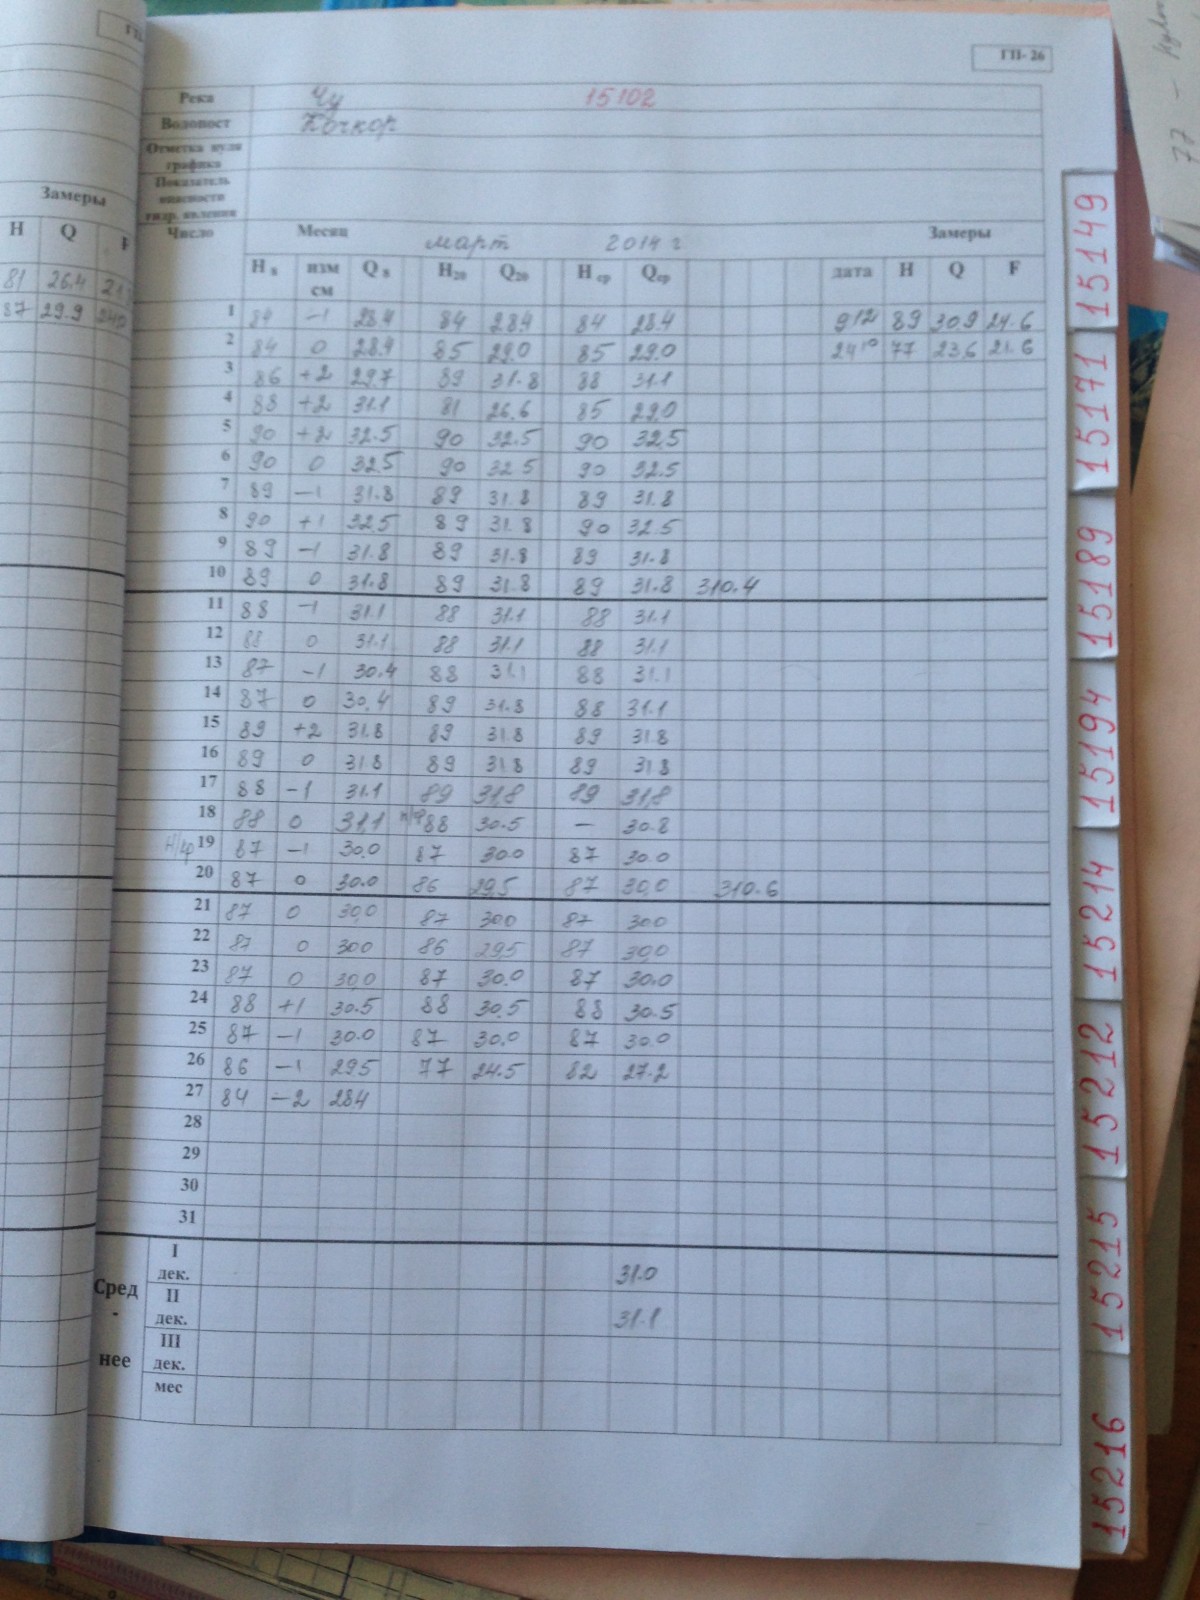 ГП- 26
Река Чу 15102
Водопост Кочкор
Отметка нуля графика
Показатель опасности гидр. явления
Число Месяц март 2014 г Замеры
H 8 изм см Q 8 H20 Q20 H ср Qср дата H Q F
1 84 -1 28.4 84 28.4 84 28.4 9 12 89 30.9 24.6
2 84 0 28.4 85 29.0 85 29.0 24 10 77 23.6 21.6
3 86 +2 29.7 89 31.8 88 31.1
4 88 +2 31.1 81 26.6 85 29.0
5 90 +2 32.5 90 32.5 90 32.5
6 90 0 32.5 90 32.5 90 32.5
7 89 -1 31.8 89 31.8 89 31.8
8 90 +1 32.5 89 31.8 90 32.5
9 89 -1 31.8 89 31.8 89 31.8
10 89 0 31.8 89 31.8 89 31.8 310.4
11 88 -1 31.1 88 31.1 88 31.1
12 88 0 31.1 88 31.1 88 31.1
13 87 -1 30.4 88 31.1 88 31.1
14 87 0 30.4 89 31.8 88 31.1
15 89 +2 31.8 89 31.8 89 31.8
16 89 0 31.8 89 31.8 89 31.8
17 88 -1 31.1 89 31.8 89 31.8
18 88 0 31.1 88 30.5 — 30.8
19 87 -1 30.0 87 30.0 87 30.0
20 87 0 30.0 86 29.5 87 30.0 310.6
21 87 0 30.0 87 30.0 87 30.0
22 87 0 30.0 86 29.5 87 30.0
23 87 0 30.0 87 30.0 87 30.0
24 88 +1 30.5 88 30.5 88 30.5
25 87 -1 30.0 87 30.0 87 30.0
26 86 -1 29.5 77 24.5 82 27.2
27 84 -2 28.4
28
29
30
31
Сред - нее
I дек. 31.0
II дек. 31.1
III дек.
мес
Замеры
H Q F
81 26.4
87 29.9
15149
15171
15189
15194
15214
15212
15215
15216
77 -